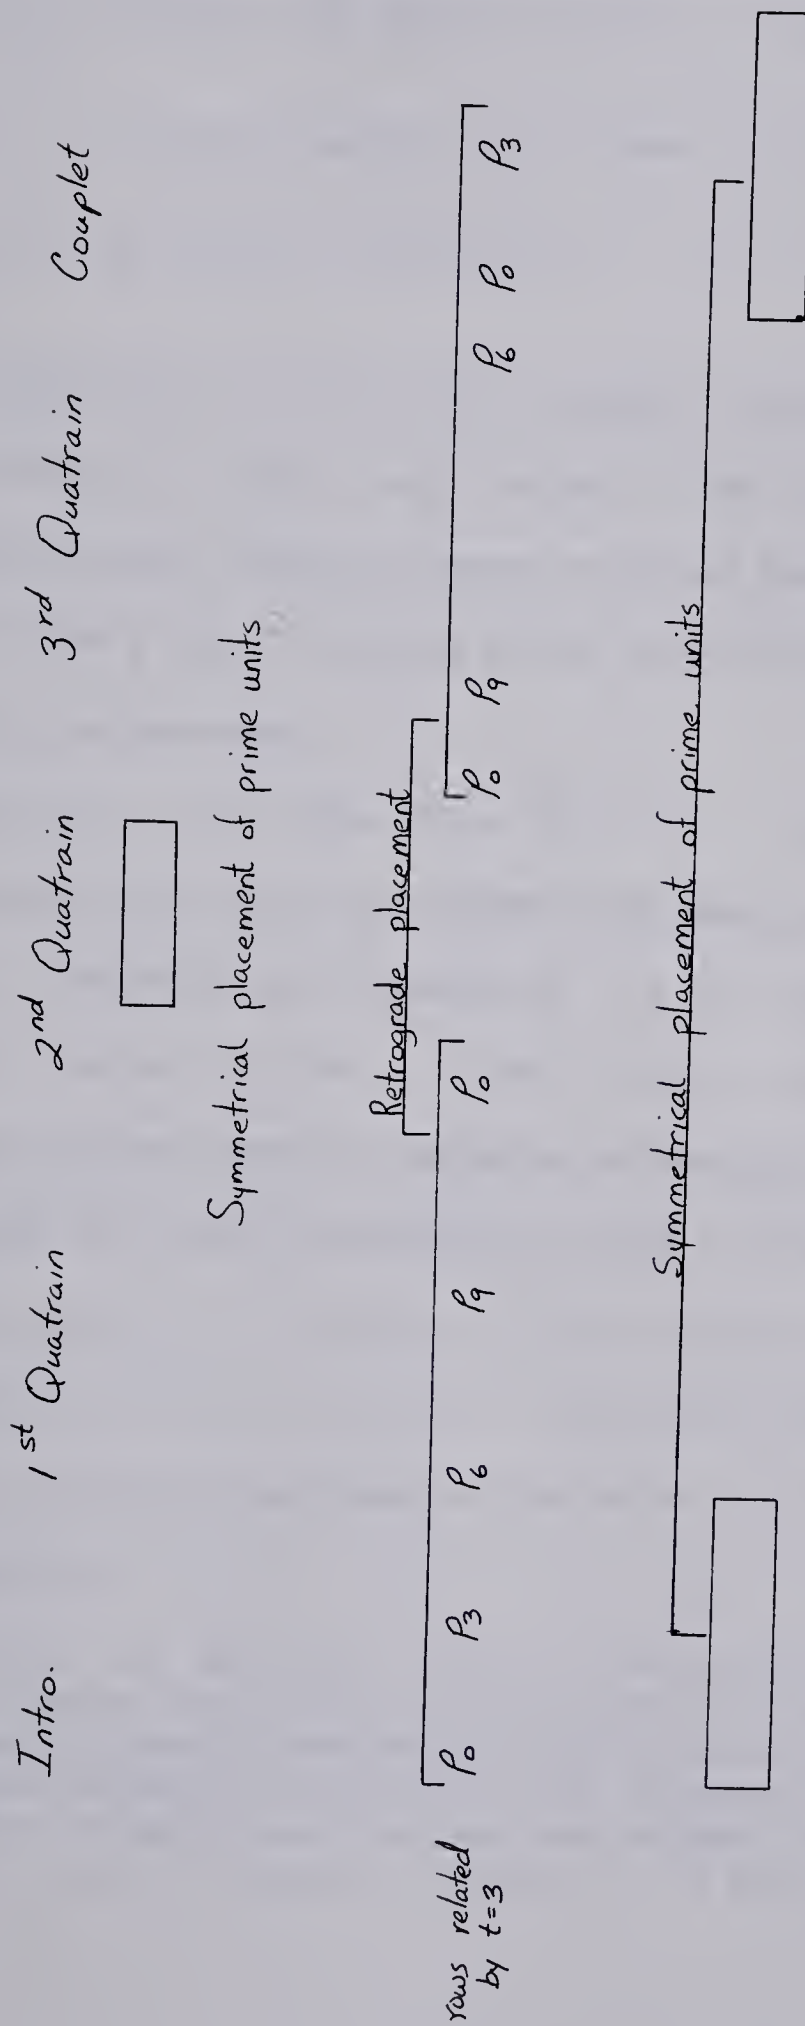 Intro. 1st Quatrain 2nd Quatrain 3rd Quatrain Couplet
Symmetrical placement of prime units
Retrograde placement
rows related
by t=3
P0 P3 P6 P9 P0 P0 P9 P6 P0 P3
Symmetrical placement of prime units